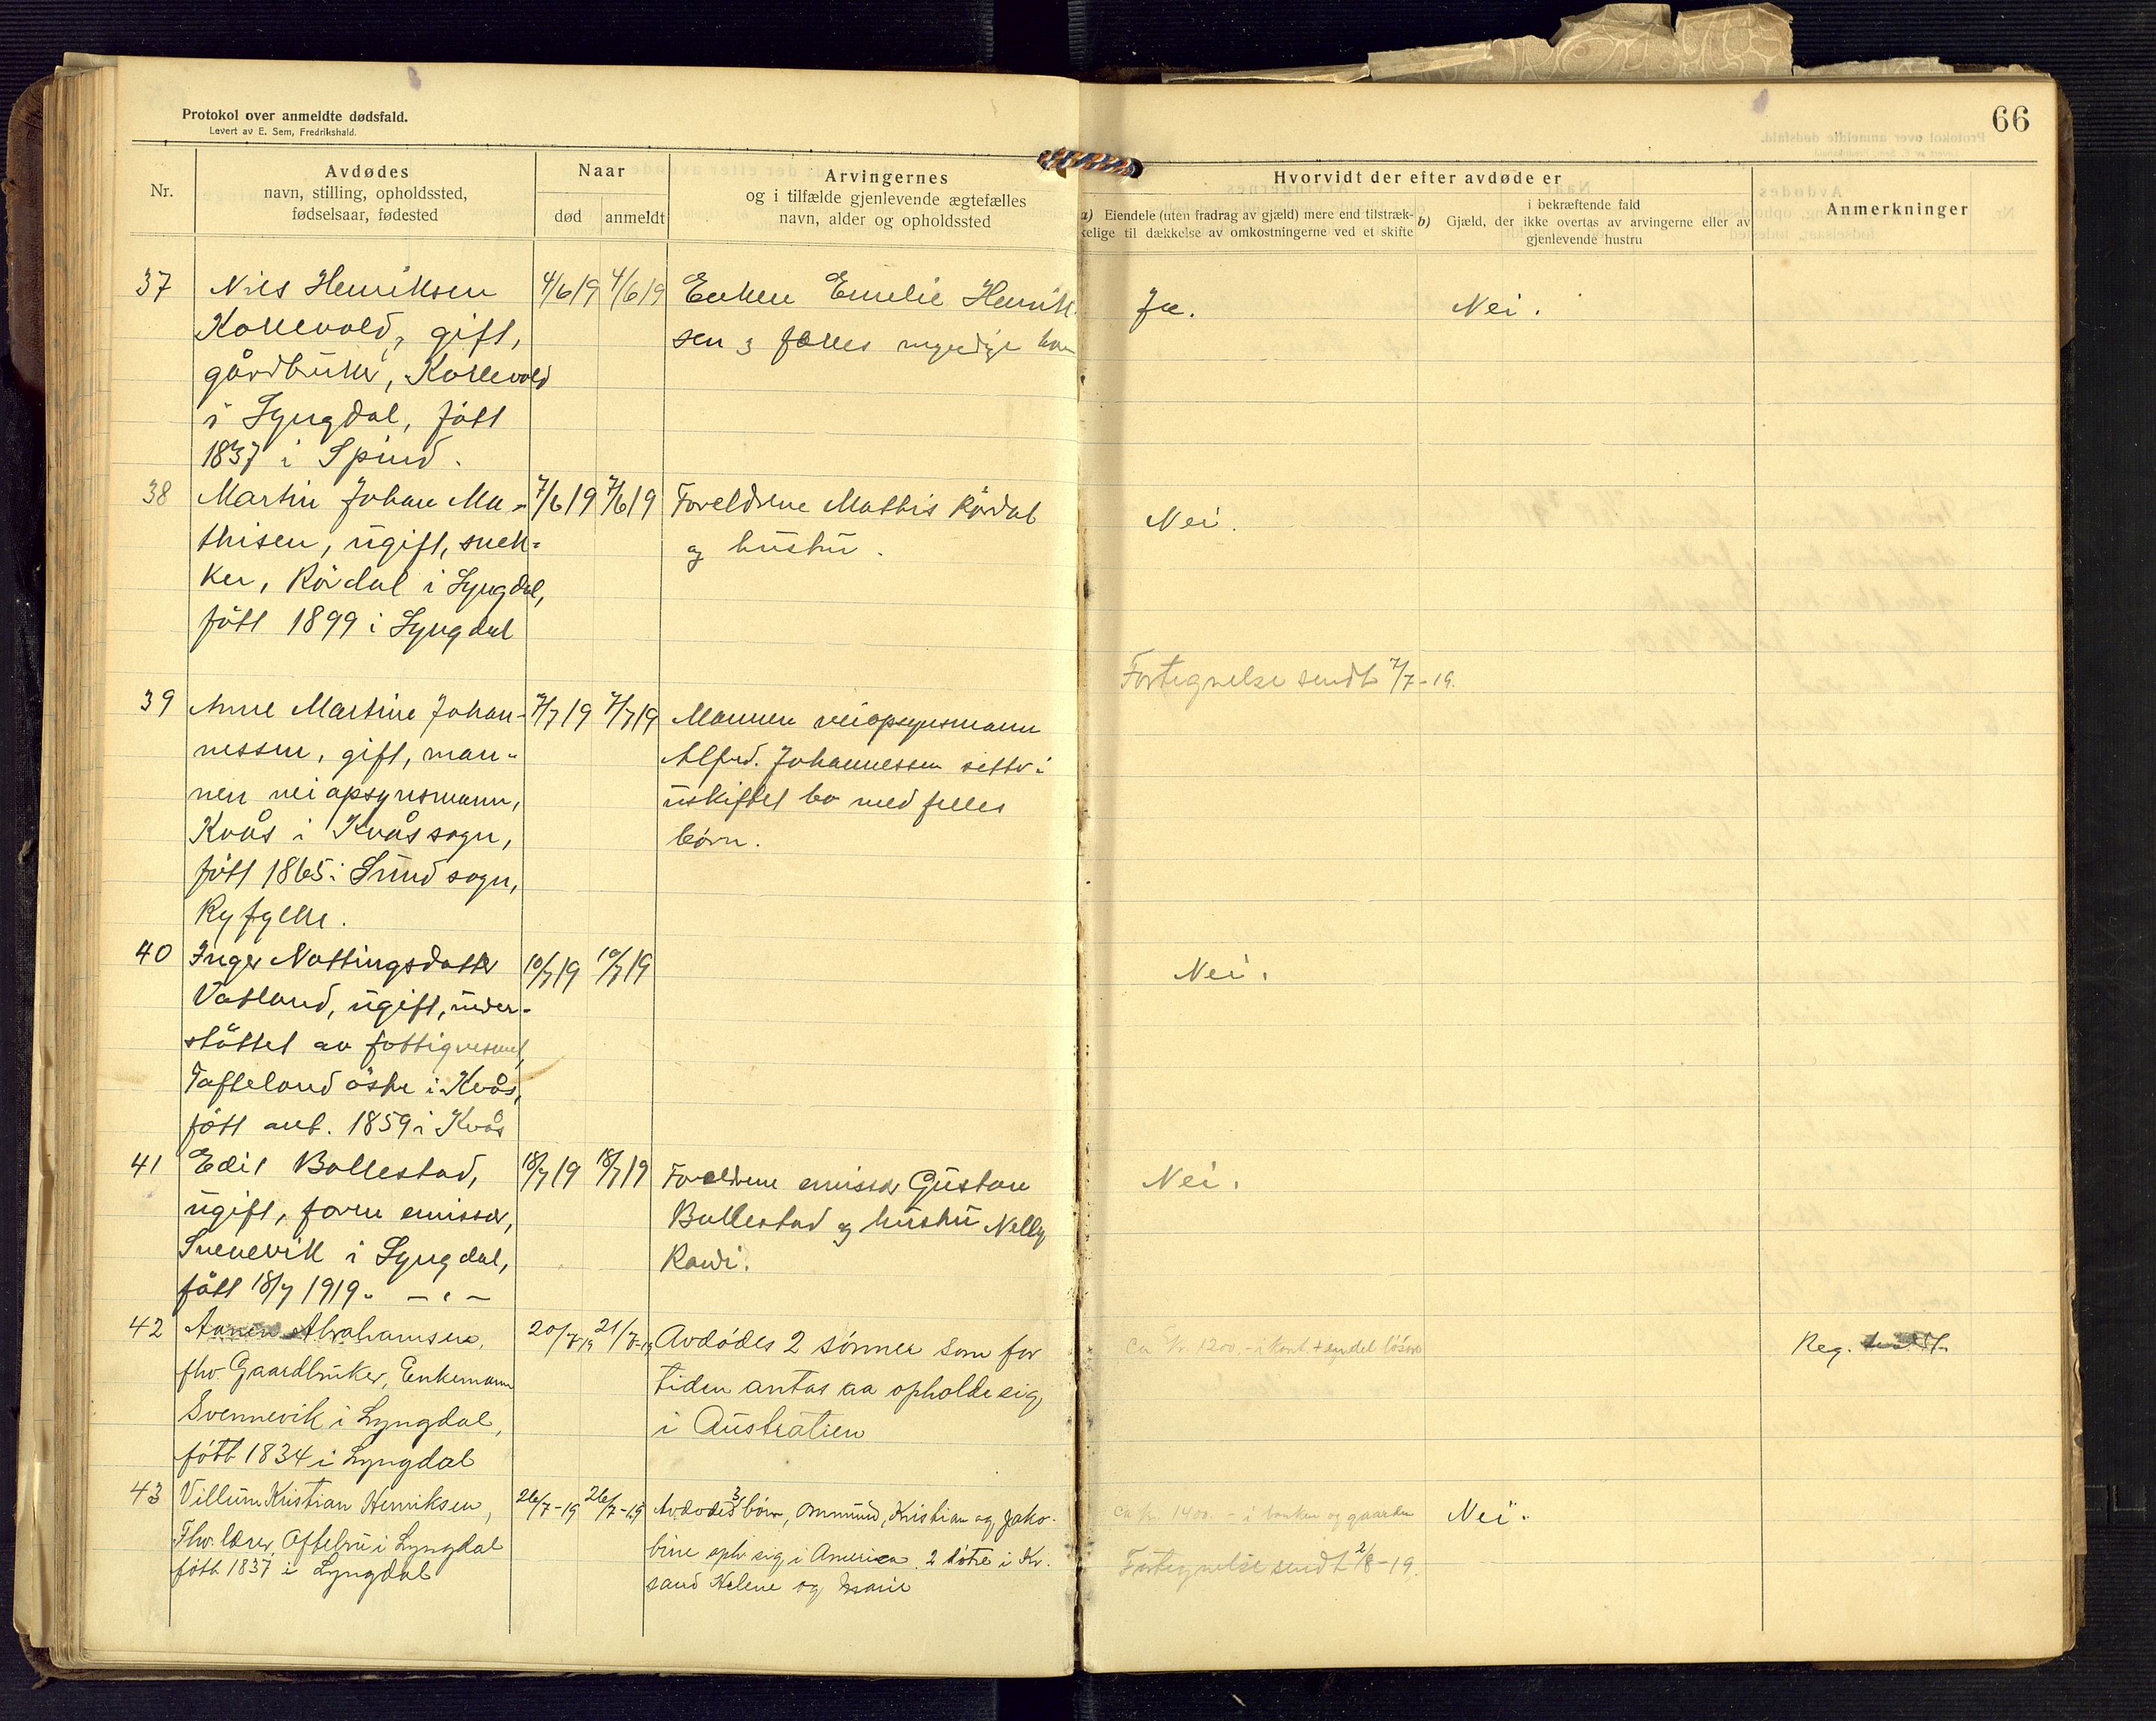 Protokol over anmeldte dødsfald.
Levert av E. Sem, Fredrikshald.
66
Nr.
Avdødes
navn, stilling, opholdssted,
fødselsaar, fødested
Naar
død
anmeldt
Arvingernes
og i tilfælde gjenlevende ægtefælles
navn, alder og opholdssted
Hvorvidt der efter avdøde er
a) Eiendele (uten fradrag av gjæld) mere end tilstræk-
kelige til dækkelse av omkostningerne ved et skifte
i bekræftende fald
b) Gjæld, der ikke overtas av arvingerne eller av
gjenlevende hustru
Anmerkninger
37 Nils Henriksen 4/6 19 4/6 19 Enken Emelie Henrik-
Kollevold, gift, sen 3 felles myndige
gårdbruker, Kollevold
i Lyngdal, født
1837 i Spind.
Ja. Nei.
38 Martin Johan Ma- 7/6 19 7/6 19 Foreldrene Mathis Rödal
thisen, ugift, snek- og hustru.
ker, Rödal i Lyngdal,
født 1899 i Lyngdal
Nei.
Fortegnelse sendt 7/7-19.
39 Anne Martine Johan- 7/7 19 7/7 19 Mannen veiopsynsmann
nessen, gift, man- Alfred Johannessen sitter i
nen veiopsynsmann, uskiftet bo med felles
Kvås i Kvås sogn, börn.
født 1865 i Lund sogn,
Ryfylke.
40 Inger Nottingsdatter 10/7 19 10/7 19
Vatland, ugift, under-
støttet av fattigvesenet,
Tafteland östre i Kvås,
født ant. 1859 i Kvås
Nei.
41 Edit Bollestad, 18/7 19 18/7 19 Foreldrene emissær Gustav
ugift, foren emissær, Bollestad og hustru Nelly
Svenevik i Lyngdal, Randi.
født 18/7 1919.
Nei.
42 Abrahamsen, 20/7-19 21/7-19 Avdødes 2 sønner som for
fhv. Gaardbruker, Enkemann tiden antas aa opholde sig
Svennevik i Lyngdal, i Australien
født 1834 i Lyngdal
ca kr. 1200.- i kont. + endel løsøre
Reg.
43 Villum Kristian Henriksen, 26/7-19 26/7-19 Avdødes 3 børn, Ommund, Kristian og Jako-
Fhv. lærer, Oftebru i Lyngdal bine oph. sig i America. 2 døtre i Kr.
født 1837 i Lyngdal sand Helene og Marie
ca kr. 1400.- i banken og gaarden Nei.
Fortegnelse sendt 2/8-19.